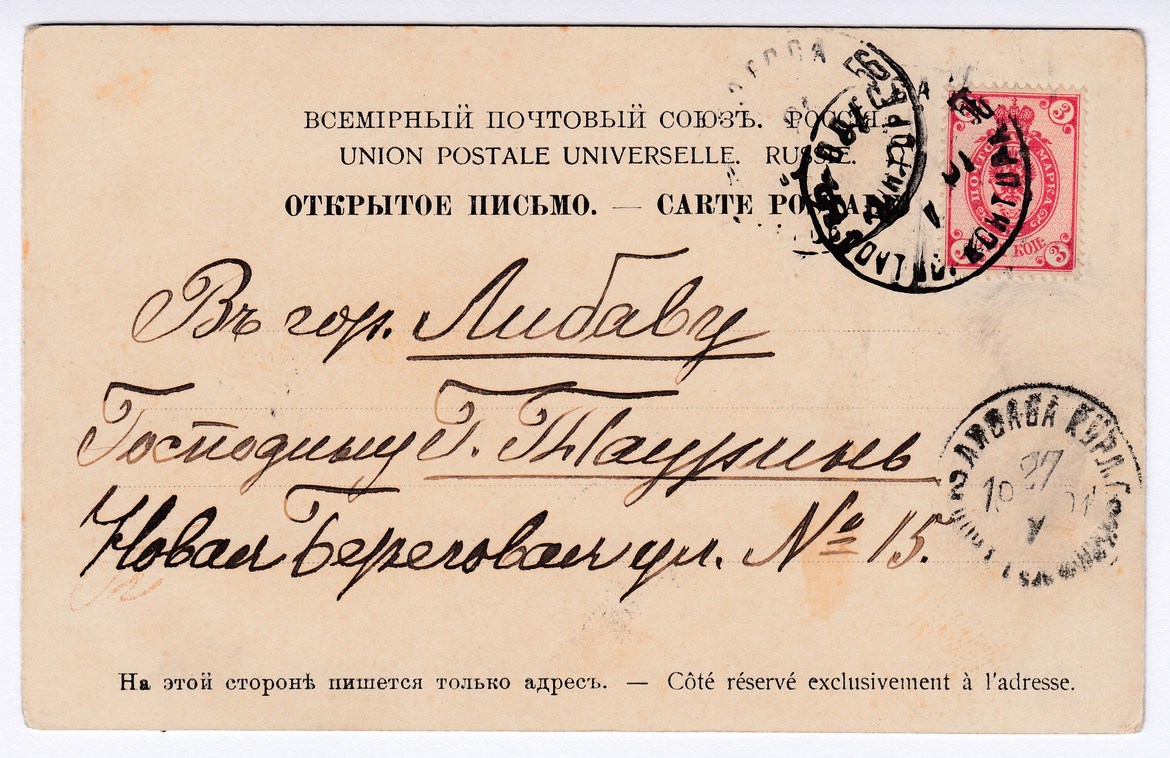 ВСЕМІРНЫЙ ПОЧТОВЫЙ СОЮЗЪ. РОССІЯ.
UNION POSTALE UNIVERSELLE. RUSSIE.
ОТКРЫТОЕ ПИСЬМО. — CARTE POSTALE
3 3
ПОЧТОВ МАРКА
3 КОП. 3
КОНТОРА
Въ гор. Либаву
Господину Г. Тауринь
Новая Береговая ул. № 15.
ЛИБАВА КУРЛ.
27
На этой сторонѣ пишется только адресъ. — Côté réservé exclusivement à l'adresse.